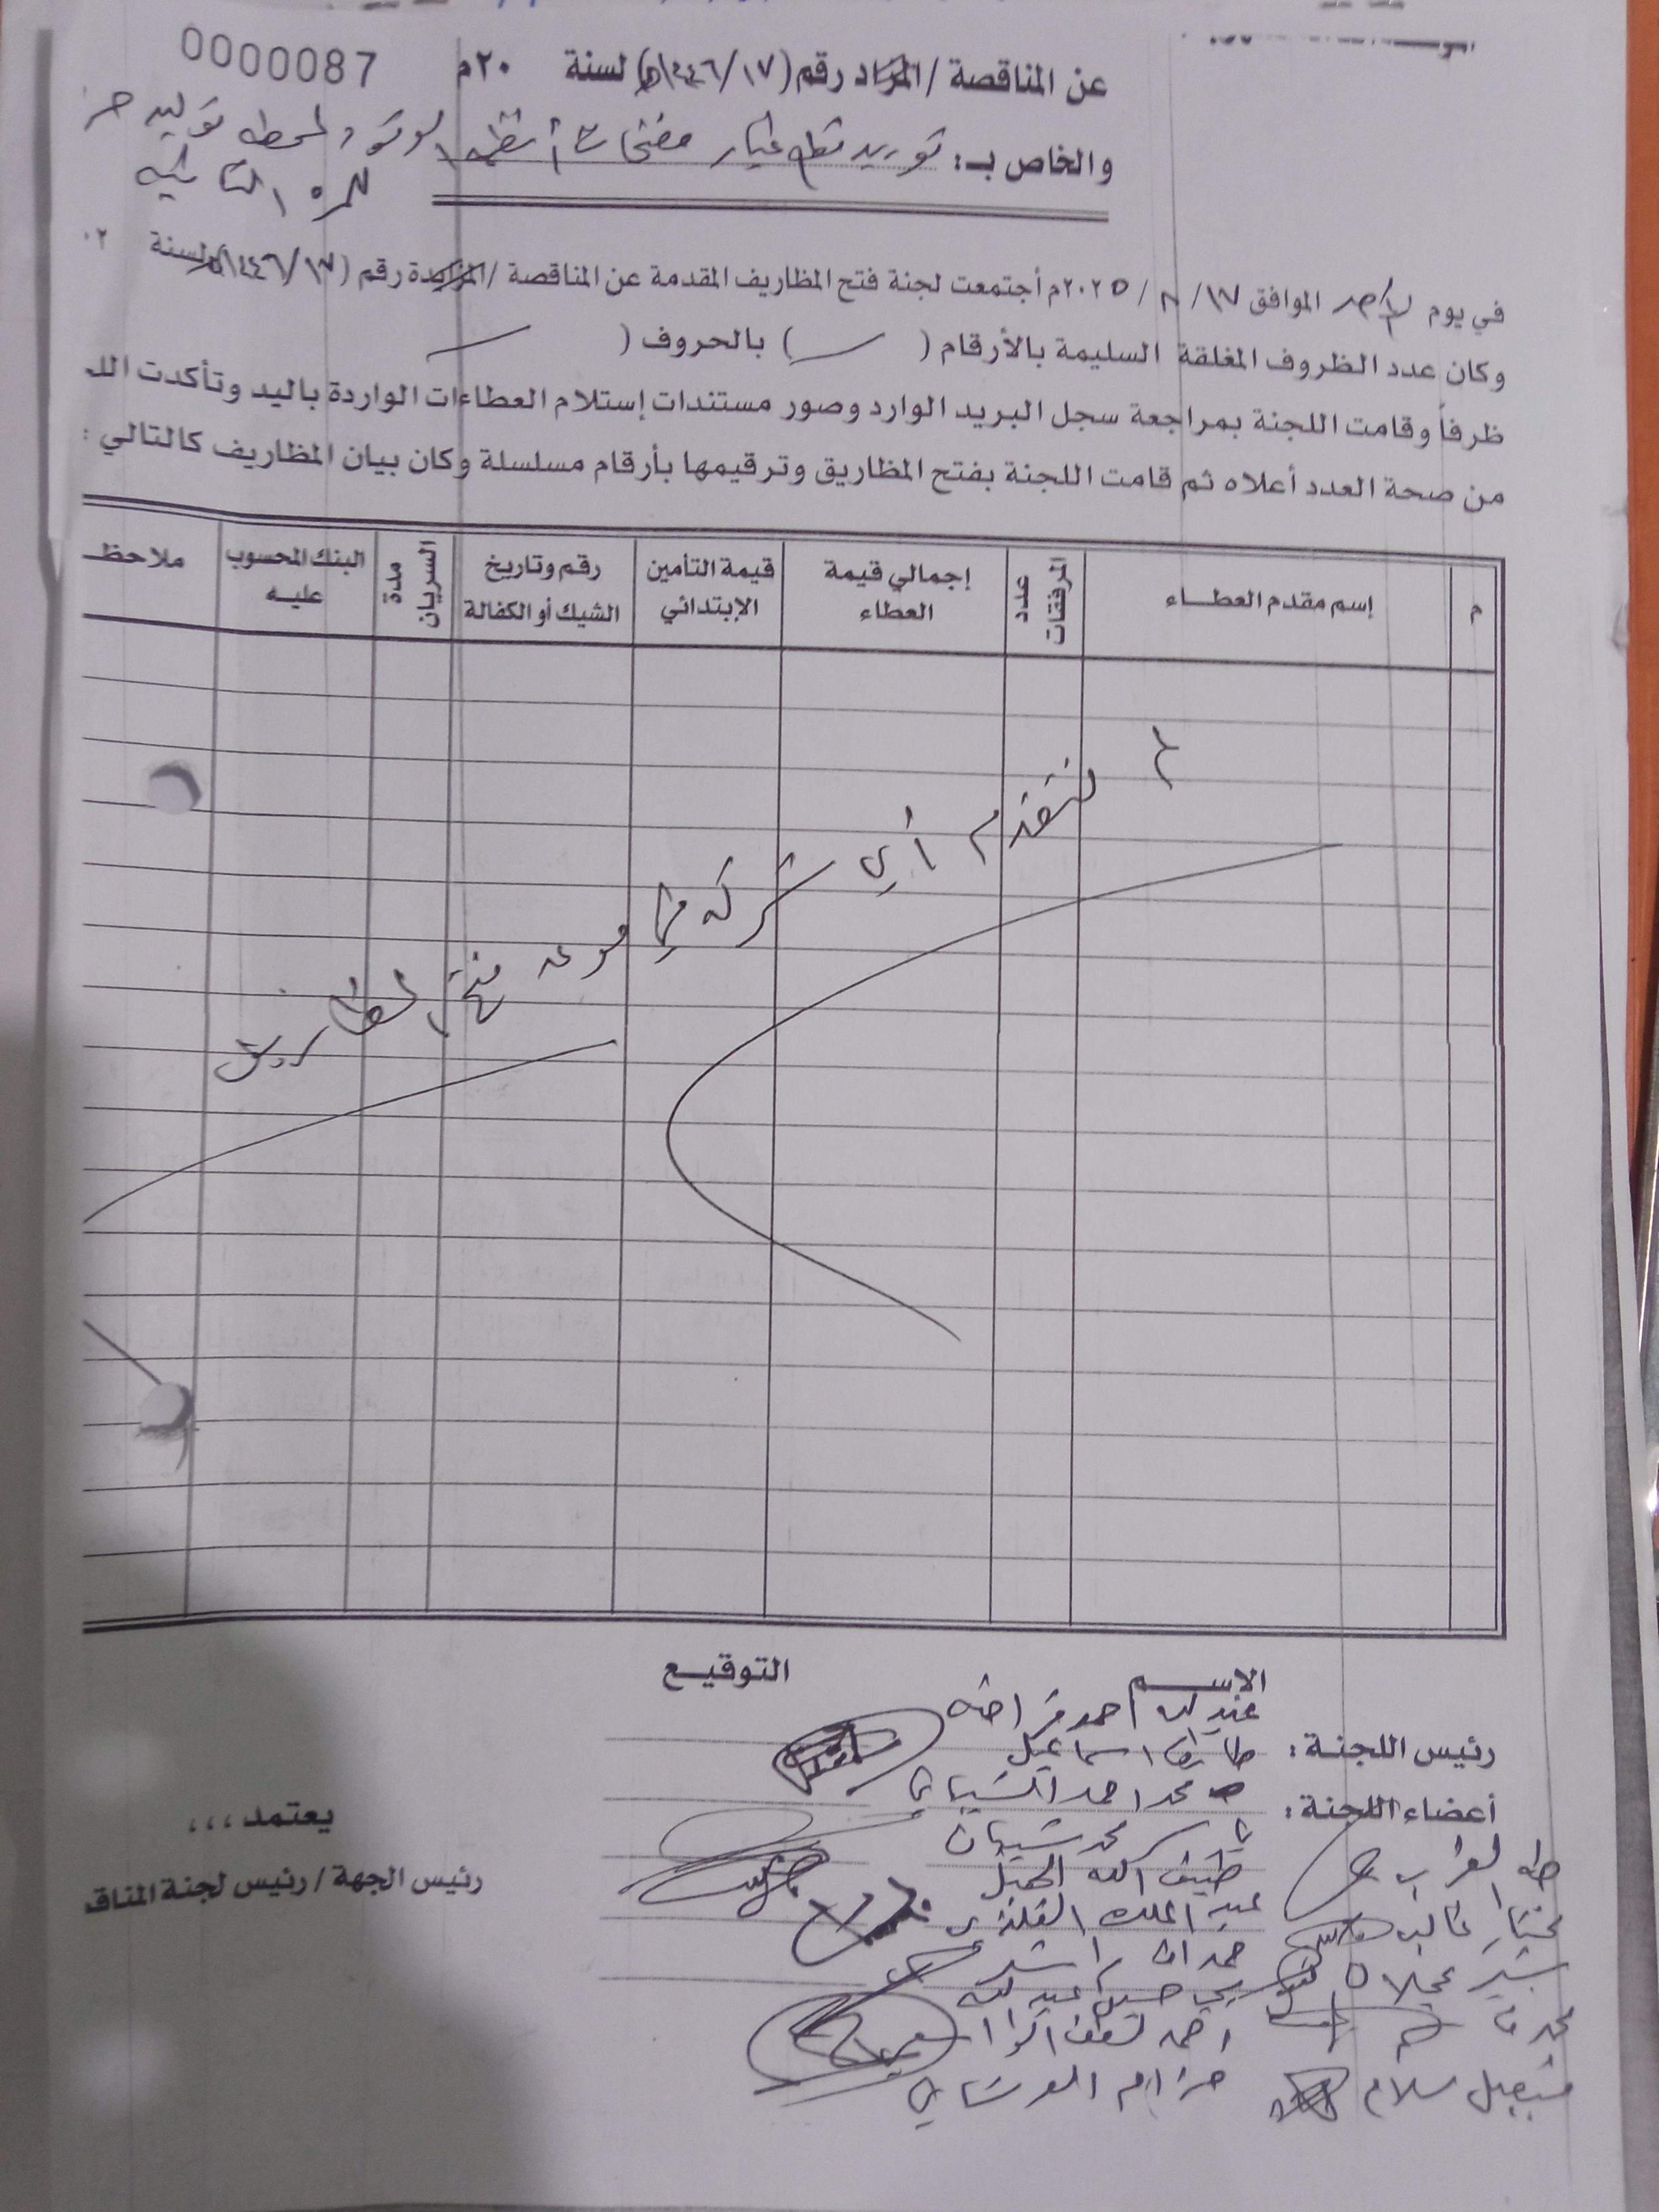 0000087
عن المناقصة / المزاد رقم (١٧/١٤٤٦ه) لسنة ٢٠م
والخاص بـ: توريد قطع غيار مضخات أنظمة الوقود لمحطة توليد حز
للمرة الثانية
في يوم الأحد الموافق ١٧/٨/٢٠٢٥م أجتمعت لجنة فتح المظاريف المقدمة عن المناقصة / المزايدة رقم (١٧/١٤٤٦ه) لسنة ٢٠
وكان عدد الظروف المغلقة السليمة بالأرقام ( ) بالحروف (
ظرفاً وقامت اللجنة بمراجعة سجل البريد الوارد وصور مستندات إستلام العطاءات الواردة باليد وتأكدت اللـ
من صحة العدد أعلاه ثم قامت اللجنة بفتح المظاريق وترقيمها بأرقام مسلسلة وكان بيان المظاريف كالتالي :
م إسم مقدم العطـــاء عدد المرفقات إجمالي قيمة العطاء قيمة التأمين الإبتدائي رقم وتاريخ الشيك أو الكفالة مدة السريان البنك المحسوب عليـه ملاحظـ
لم تتقدم أي شركة في موعد فتح المظاريف
الإســـم التوقيـــع
عبدالله احمد
رئيس اللجنـة : طارق اسماعيل
أعضاء اللجنة : محمد احمد الشيباني
ياسر محمد شيبان
طه العزاب ضيف الله الجبل
مختار غالب عبد الملك
بشير عجلان حمدان راشد
يحيى حسين عبدالله
محمد احمد لطف
سلام حزام الوشاي
يعتمد ،،،
رئيس الجهة / رئيس لجنة المناقـ